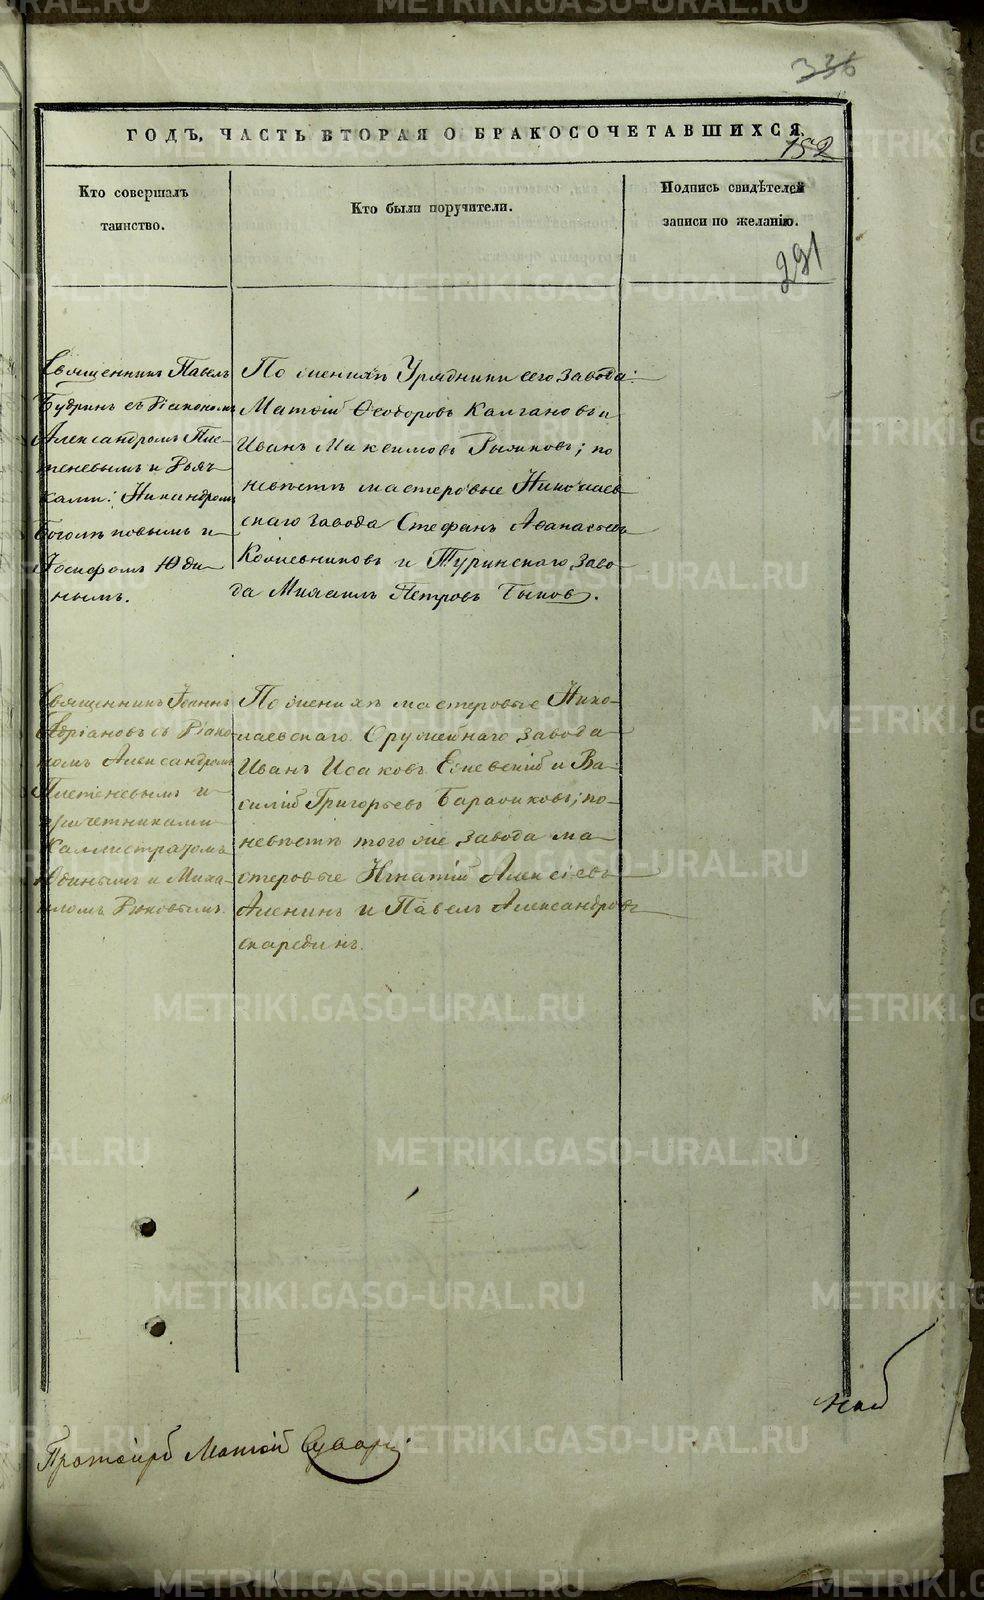 336
ГОДЪ, ЧАСТЬ ВТОРАЯ О БРАКОСОЧЕТАВШИХСЯ.
152
Кто совершалъ
таинство.
Кто были поручители.
Подпись свидѣтелей
записи по желанію.
291
Священникъ Павелъ
Будринъ съ Діакономъ
Александромъ Пле-
теневымъ и Дьяч-
ками: Никандромъ
Боголѣповымъ и
Іосифомъ Юди-
нымъ.
По женихѣ Урядники сего завода:
Матѳій Ѳеодоровъ Калгановъ и
Иванъ Максимовъ Рыжковъ; по
невѣстѣ мастеровые Николаев-
скаго завода Стефанъ Аѳанасьевъ
Кожевниковъ и Туринскаго заво-
да Михаилъ Петровъ Быковъ.
Священникъ Іоаннъ
Адріановъ съ Діако-
номъ Александромъ
Плетеневымъ и
причетниками
Каллистратомъ
Юдинымъ и Миха-
иломъ
По женихѣ мастеровые Нико-
лаевскаго Оружейнаго завода
Иванъ Исаковъ Есневскій и Ва-
силій Григорьевъ Баранниковъ; по
невѣстѣ того же завода ма-
стеровые Игнатій Алексѣевъ
Аленинъ и Павелъ Александровъ
скарединъ.
Протоіерей Матѳій
METRIKI.GASO-URAL.RU